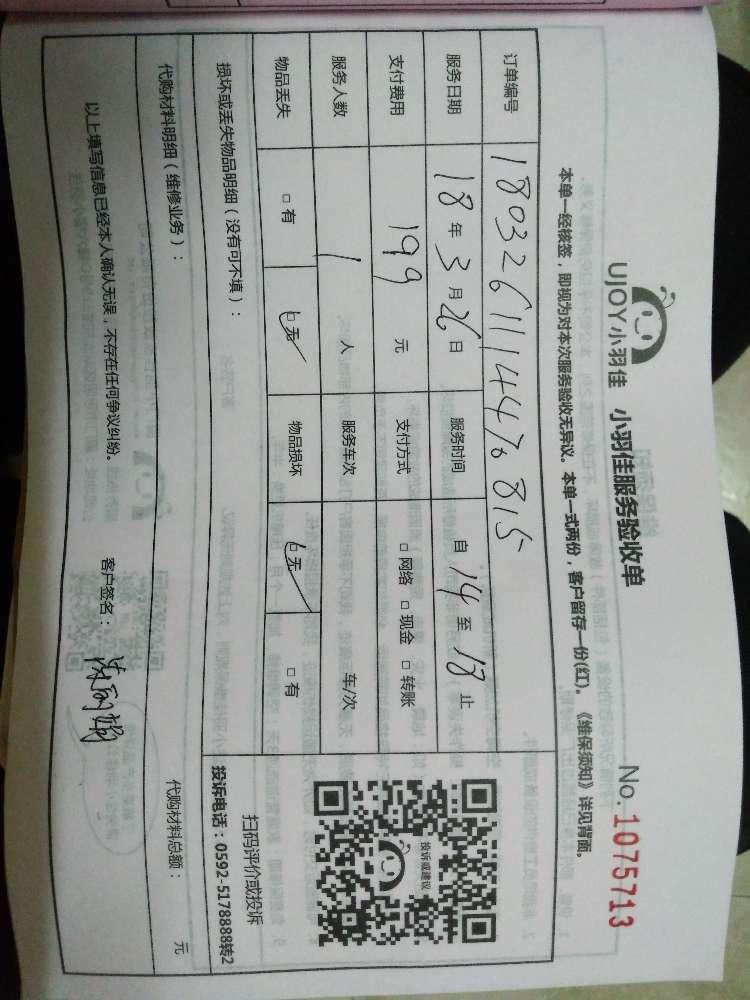 UJOY小羽佳 小羽佳服务验收单
No. 1075713
本单一经核签，即视为对本次服务验收无异议。本单一式两份，客户留存一份(红)。《维保须知》详见背面。
订单编号 180326111447０815
服务日期 18年3月26日 服务时间 自14至18止
支付费用 199元 支付方式 □网络 □现金 □转账
服务人数 1人 服务车次 车/次
物品丢失 □有 □无✓ 物品损坏 □无✓ □有
投诉或建议
扫码评价或投诉
投诉电话：0592-5178888转2
损坏或丢失物品明细（没有可不填）：
代购材料明细（维修业务）： 代购材料总额： 元
以上填写信息已经本人确认无误，不存在任何争议纠纷。 客户签名：